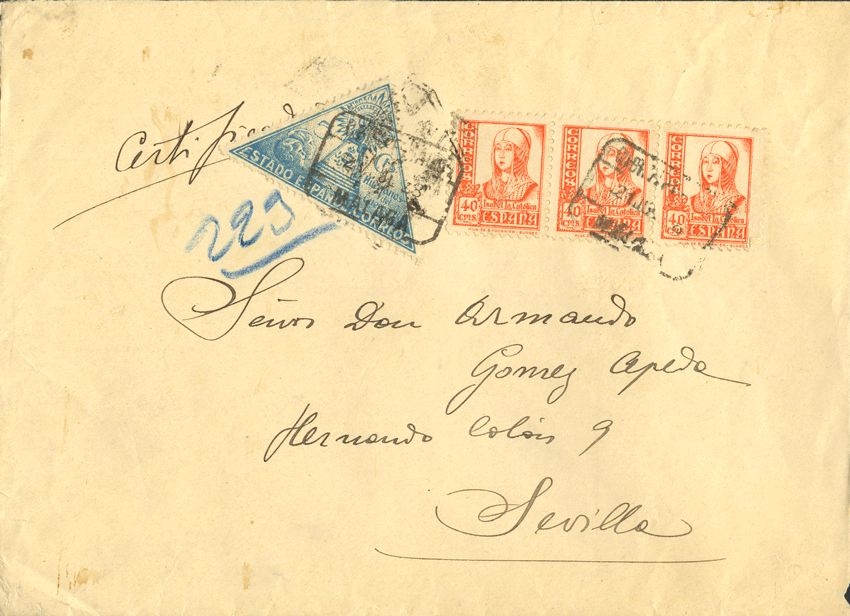 Certificado
229
ESTADO ESPAÑOL CORREOS
CORREOS
40 cts.
Isabel la Católica
ESPAÑA
CORREOS
40 cts.
Isabel la Católica
ESPAÑA
CORREOS
40 cts.
Isabel la Católica
ESPAÑA
MALAGA
Señor Don Armando
Gomez Apeda
Hernando Colón 9
Sevilla